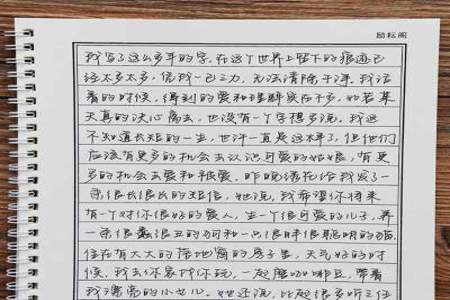 励耘阁
我写了这么多年的字.在这个世界上留下的痕迹已
经太多太多,凭我一己之力,无法清除干净.我活
着的时候,得到的爱和理解实在不多,如若某
天真的决心离去,也没有一个字想多说.我这
不知道长短的一生,也许一直是这样了,但他们
应该有更多的机会去认识可爱的姑娘,有更
多的机会去爱和被爱.昨晚诱花给我发了一
条很长很长的短信,她说,我希望你将来
有一个对你很好的爱人,生一个很可爱的儿子,养
一条很蠢很丑的狗和一只很胖很聪明的猫.
住在有大大的落地窗的房子里,天气好的时
候,我去你家找你玩,一起磨咖啡豆,带着
我漂亮的小女儿.她还说,比起很多听三任